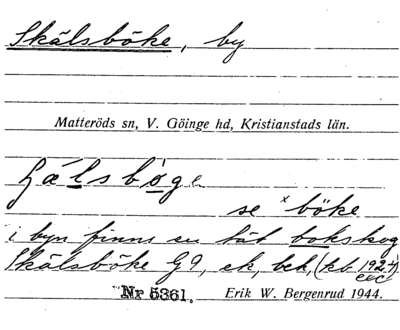 Skälsböke, by
Matteröds sn, V. Göinge hd, Kristianstads län.
se ˣböke
i byn finns en tät bokskog
Skälsböke G9, ek, bek, (kb 1924)
Nr 5361. Erik W. Bergenrud 1944.